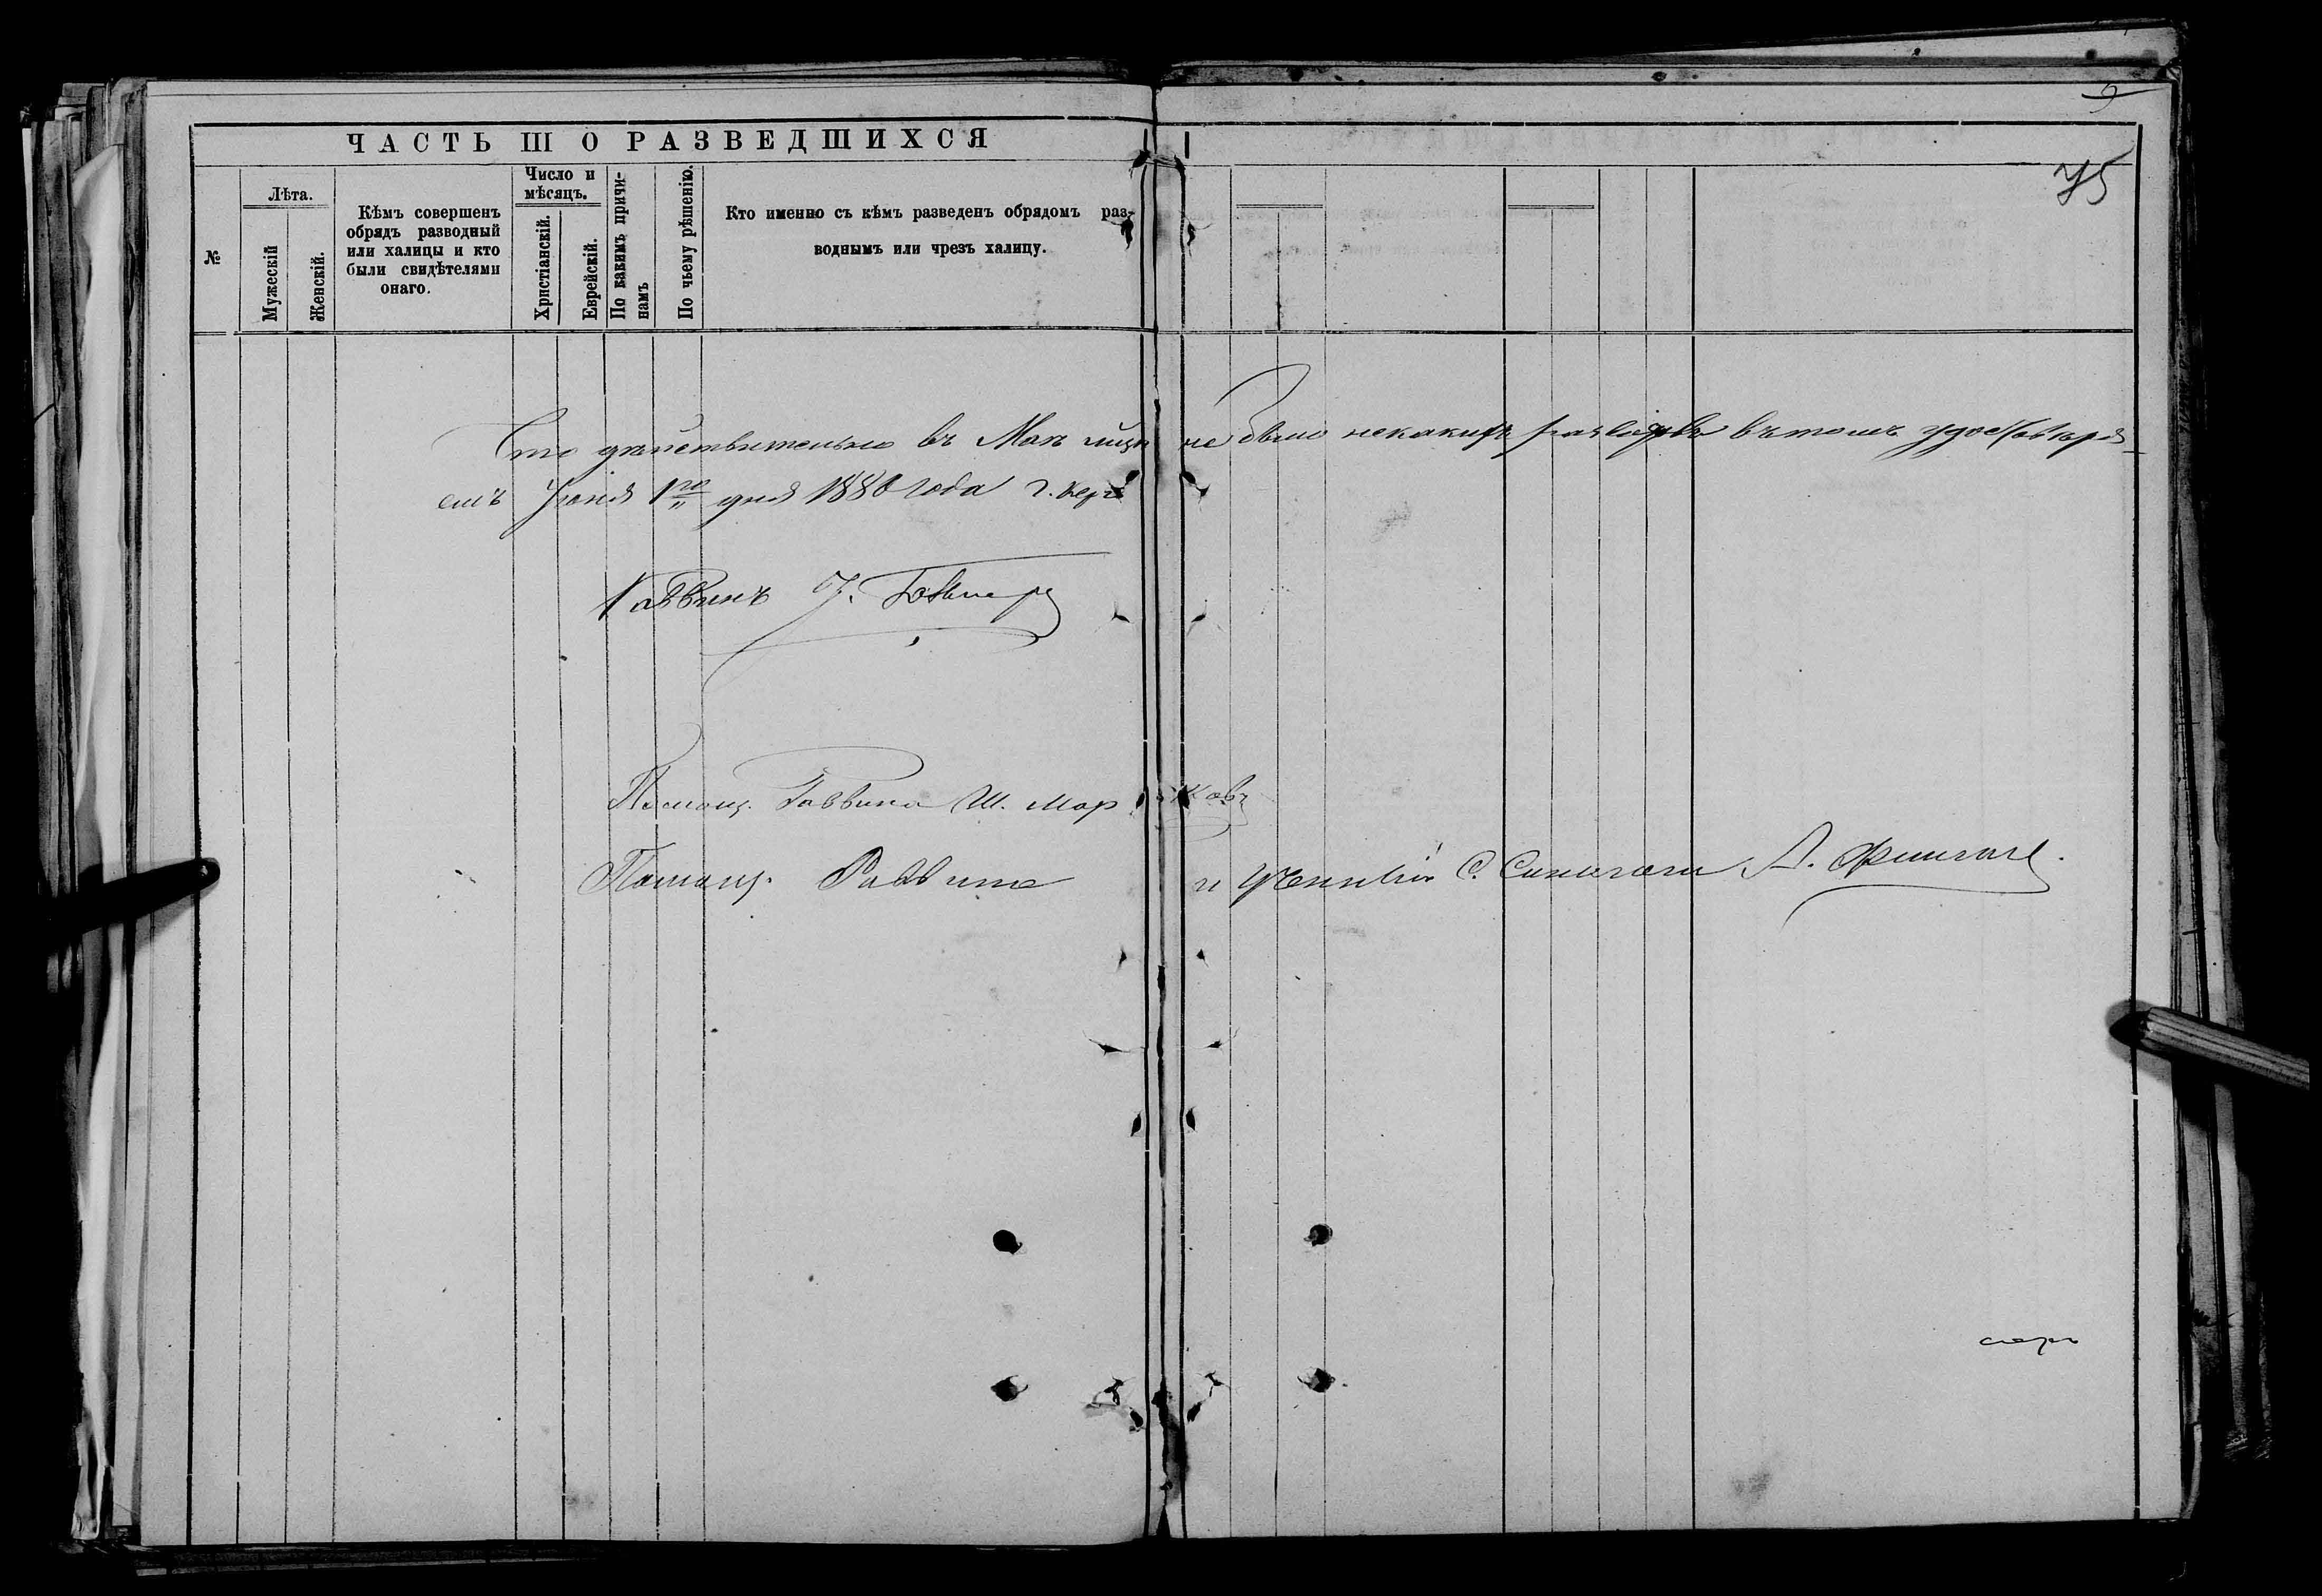 ЧАСТЬ III О РАЗВЕДШИХСЯ
75
№
Лѣта.
Мужескій
Женскій.
Кѣмъ совершенъ
обрядъ разводный
или халицы и кто
были свидѣтелями
онаго.
Число и
мѣсяцъ.
Христіанскій.
Еврейскій.
По какимъ причи-
намъ
По чьему рѣшенію.
Кто именно съ кѣмъ разведенъ обрядомъ раз-
воднымъ или чрезъ халицу.
Что дѣйствительно въ Маѣ мѣсяцѣ не было некакихъ разводовъ въ томъ удостовѣря-
емъ Іюня 1го дня 1880 года г. Керчь
Раввинъ
Помощ. Раввина Ш. Марковъ
Помощ. Раввина и Ученый С. А.